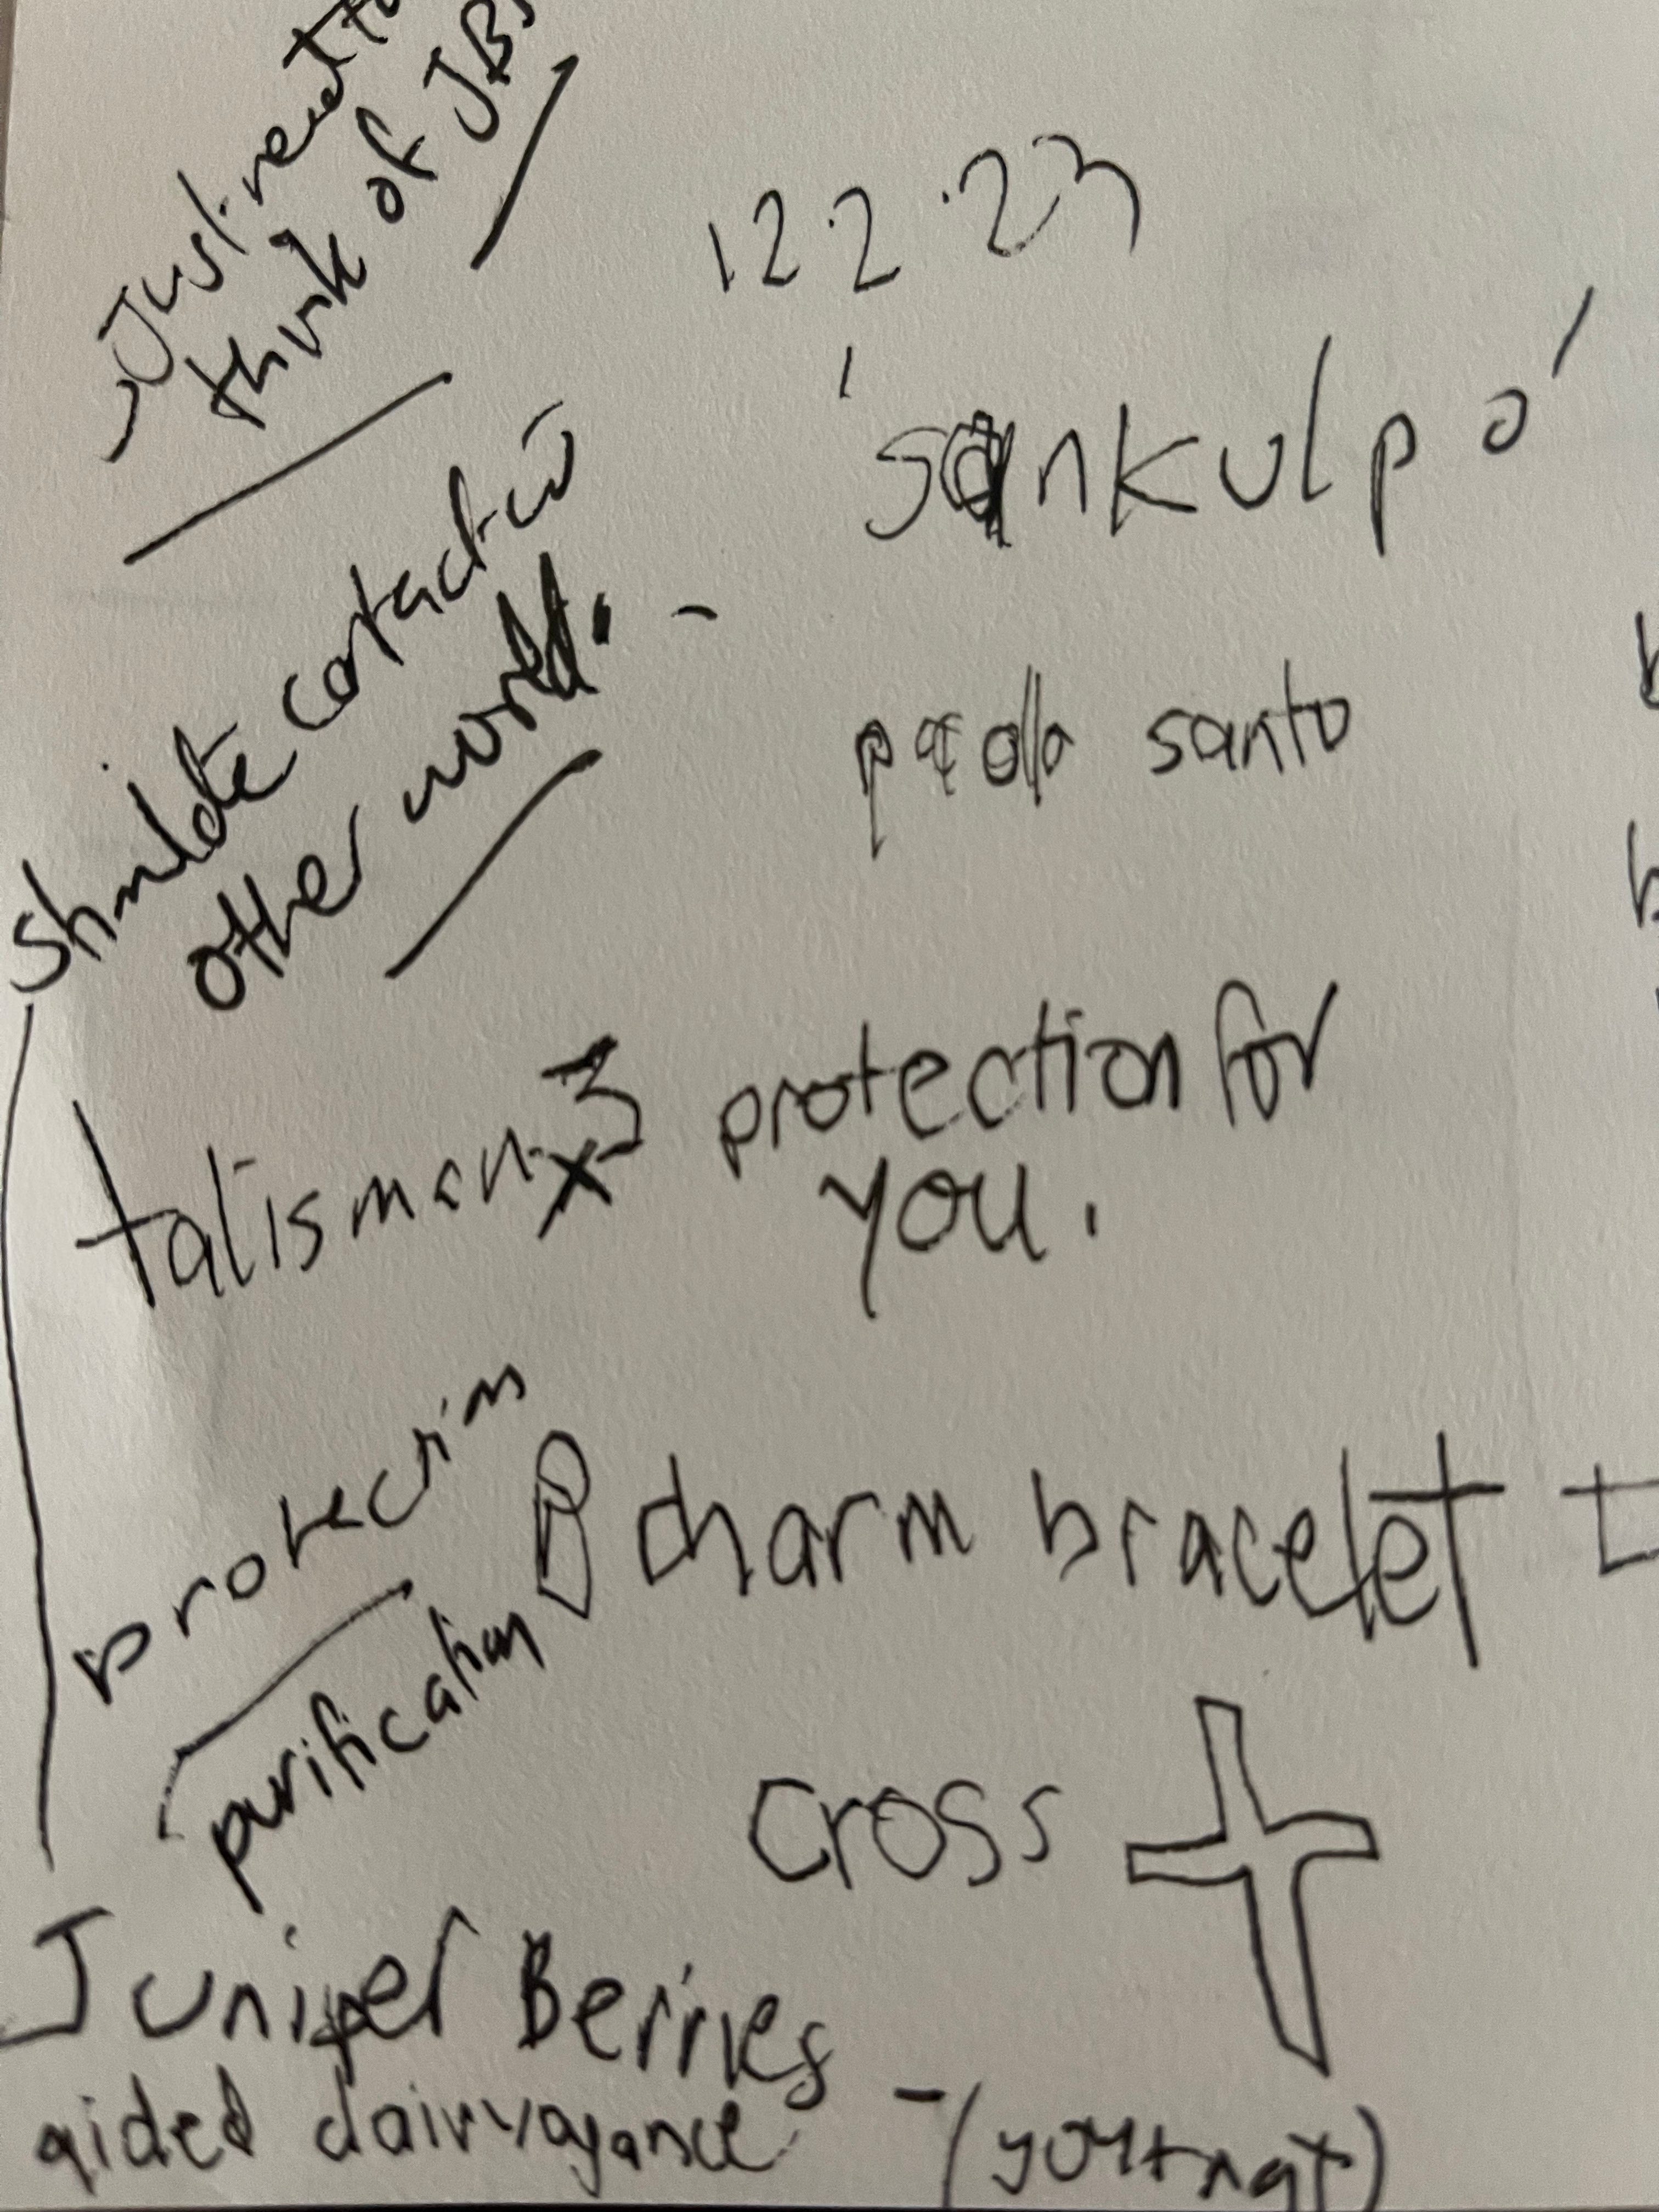 Just need to
think of JBs
12.2.23
'sankulpo'
stimulate contact w
other world. -
santo
talisman x3 protection for
you.
protection
charm bracelet
purification
cross
Juniper Berries
aided clairvoyance -